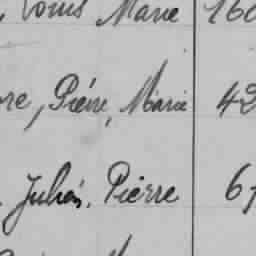 Louis Marie 160
ore, Piérre, Marie 42
Julien, Pierre 67